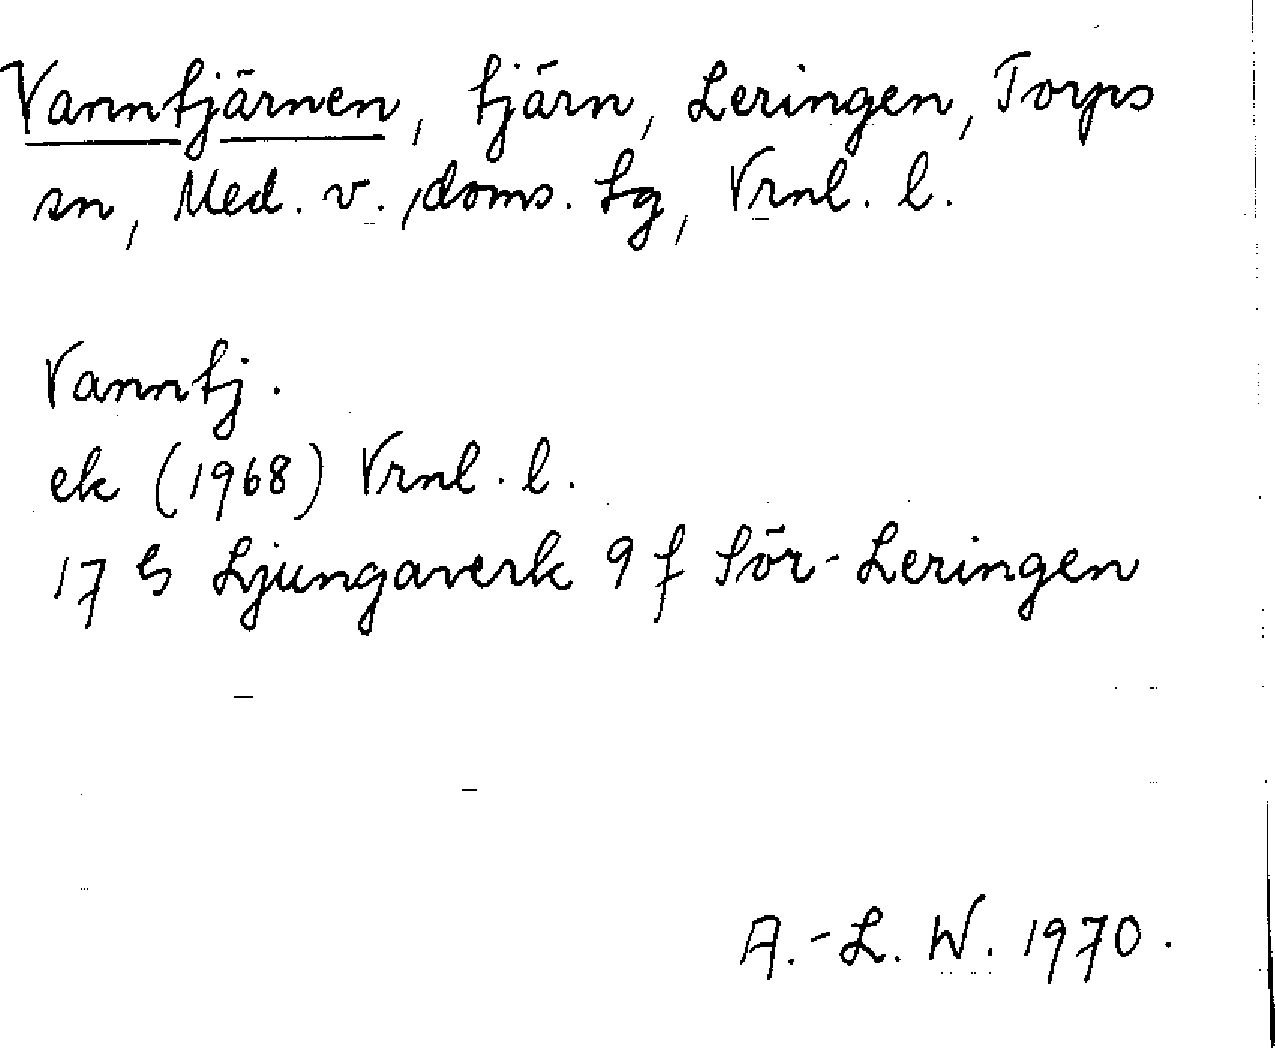 Vanntjärnen, tjärn, Leringen, Torps
sn, Med. v. doms. tg, Vrnl. l.
Vanntj.
ek (1968) Vrnl. l.
17 G Ljungaverk 9 f Sör-Leringen
A.-L. W. 1970.